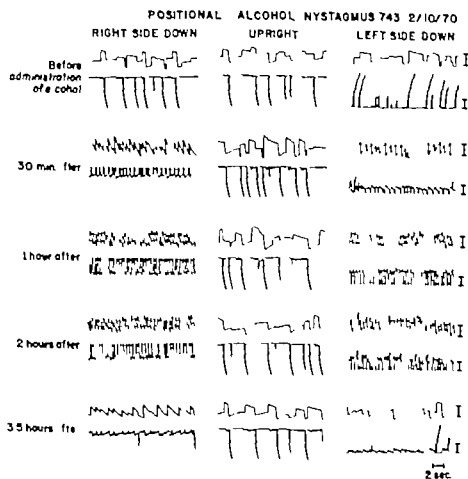 POSITIONAL ALCOHOL NYSTAGMUS 743 2/10/70
RIGHT SIDE DOWN UPRIGHT LEFT SIDE DOWN
Before
administration
of a cohol
30 min. fter
1 hour after
2 hours after
3.5 hours fte
2 sec.